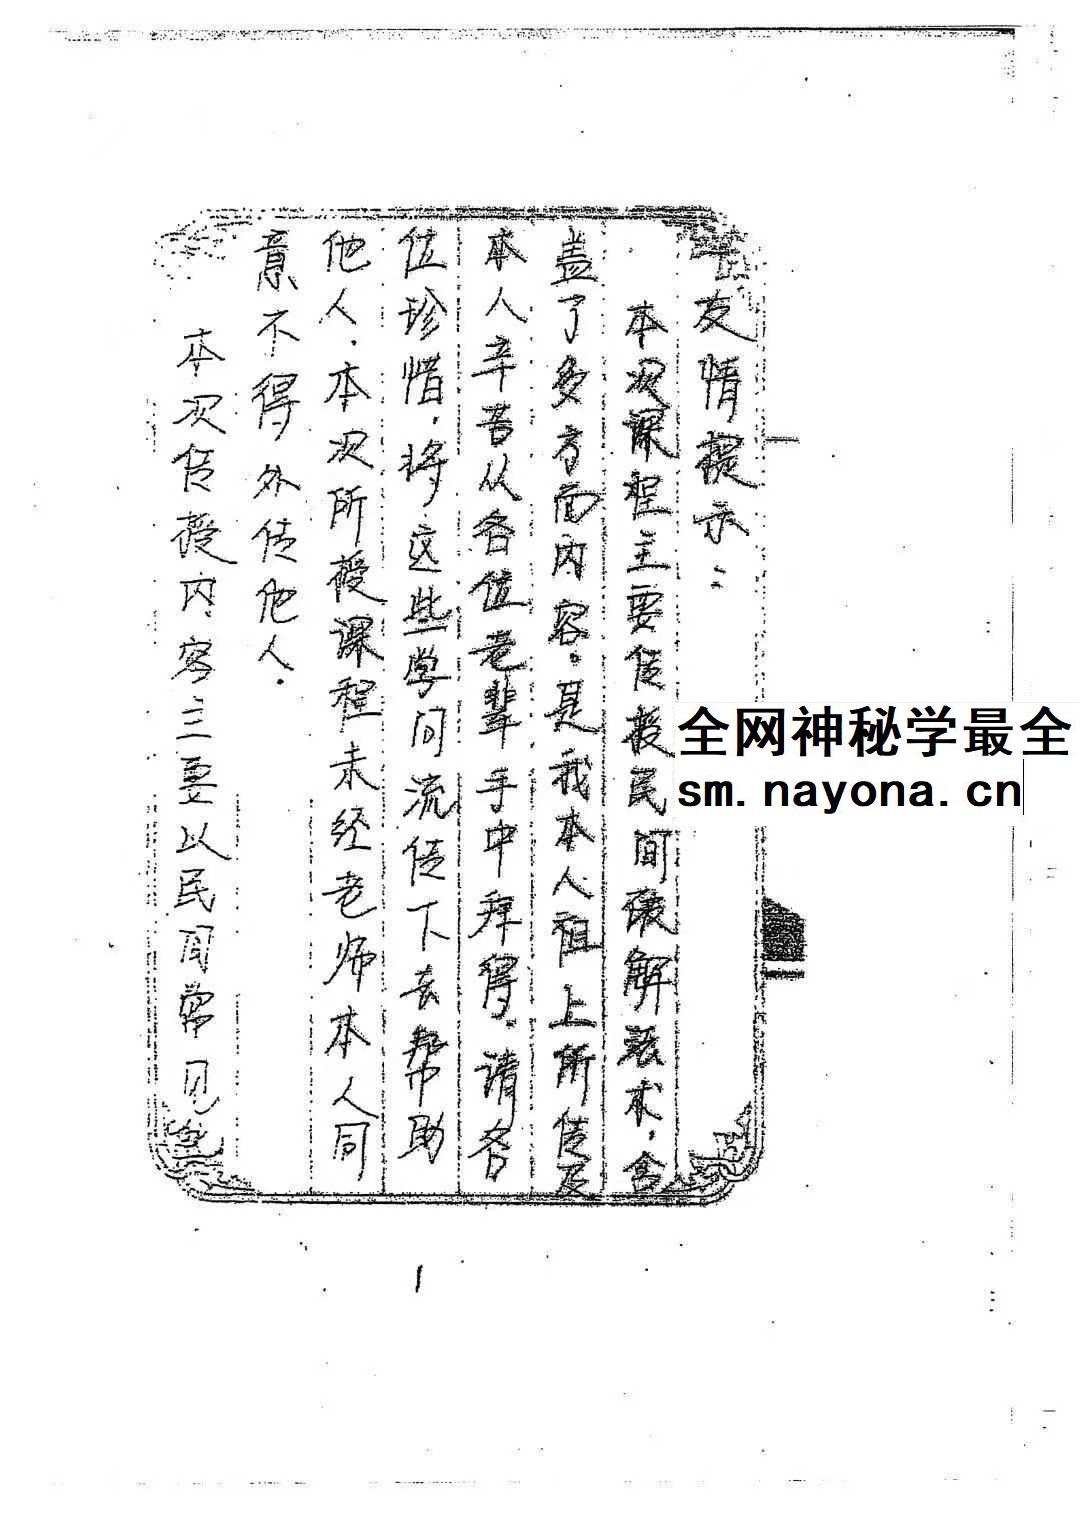 友情提示：
本次课程主要传授民间禳解法术，含
盖了多方面内容。是我本人祖上所传及
本人辛苦从各位老辈手中拜得。请各
位珍惜。将这些学问流传下去帮助
他人。本次所授课程未经老师本人同
意不得外传他人。
本次传授内容主要以民间常见
全网神秘学最全
sm.nayona.cn
1